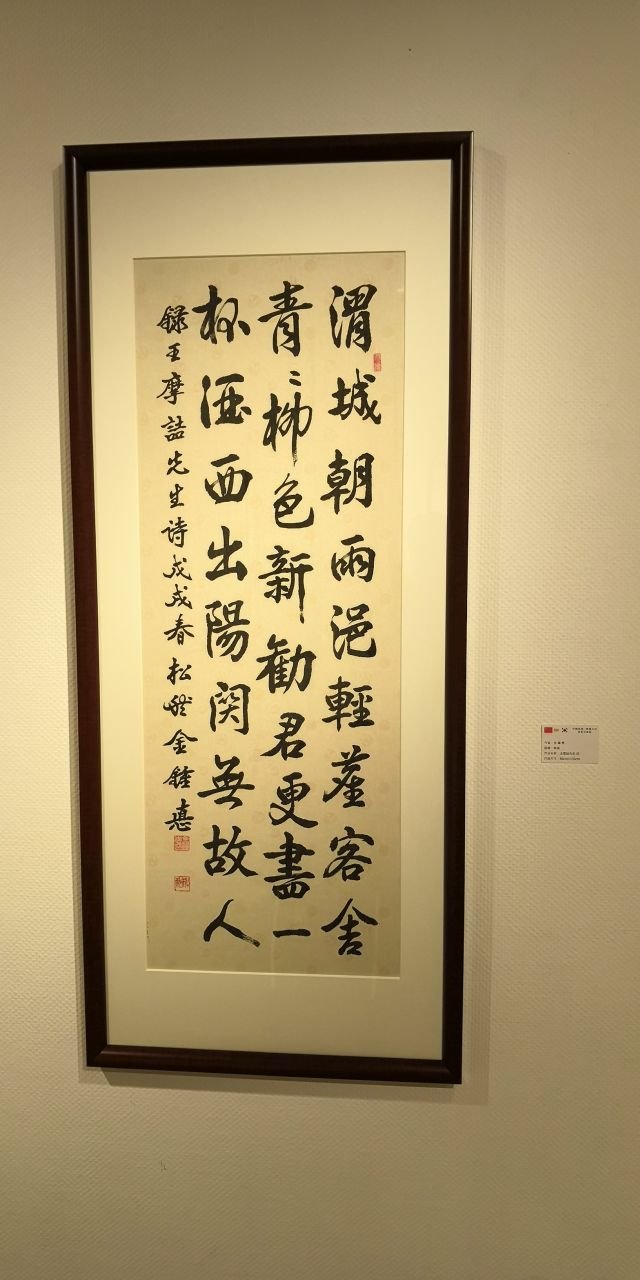 渭城朝雨浥輕塵客舍
青〻柳色新勸君更盡一
杯酒西出陽関無故人
録王摩詰先生诗戊戌春松金鍾悳